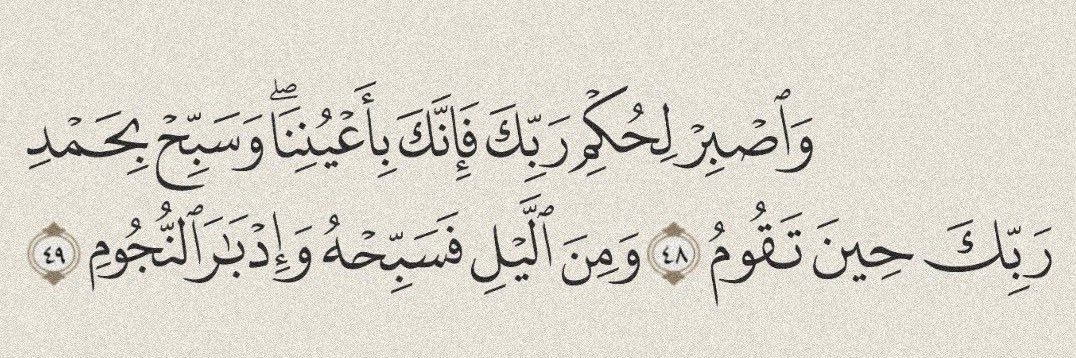 وَٱصۡبِرۡ لِحُكۡمِ رَبِّكَ فَإِنَّكَ بِأَعۡيُنِنَاۖ وَسَبِّحۡ بِحَمۡدِ
رَبِّكَ حِينَ تَقُومُ ٤٨ وَمِنَ ٱلَّيۡلِ فَسَبِّحۡهُ وَإِدۡبَٰرَ ٱلنُّجُومِ ٤٩